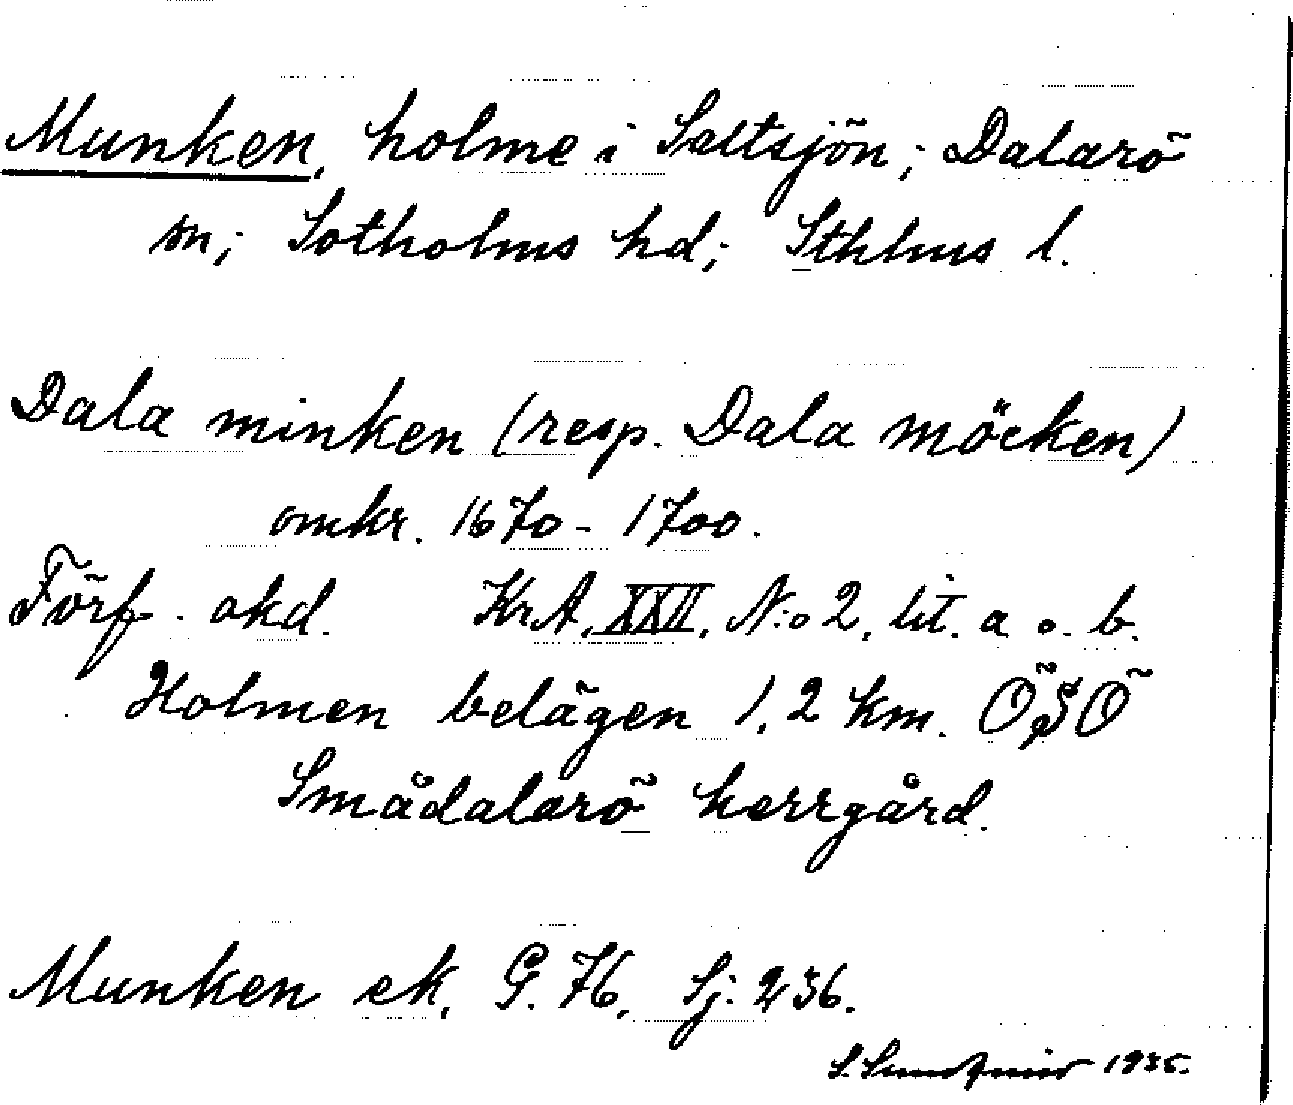 Munken, holme i Saltsjön; Dalarö
sn; Sotholms hd; Sthlms l.
Dala minken (resp. Dala möcken)
omkr. 1670-1700.
Förf. okd. KrA, XXII, N:o 2, lit. a o. b.
Holmen belägen 1,2 km. ÖSÖ
Smådalarö herrgård.
Munken ek, G. 76, Sj. 236.
S. 1935.